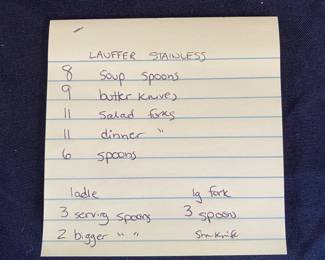 LAUFFER STAINLESS
8 soup spoons
9 butter knives
11 salad forks
11 dinner "
6 spoons
ladle lg fork
3 serving spoons 3 spoons
2 bigger " " sm knife